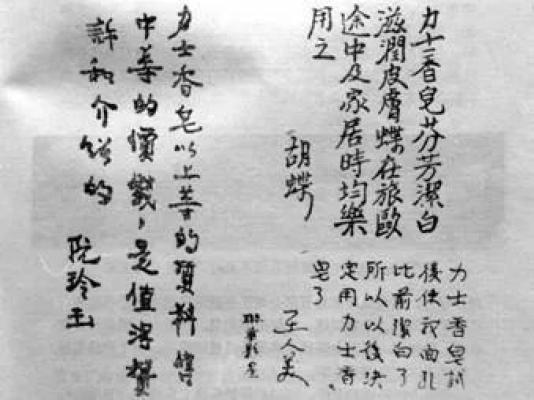 力士香皂芬芳潔白
滋潤皮膚蝶在旅歐
途中及家居時均樂
用之
胡蝶
力士香皂試
後使我面孔
比前潔白了
所以以後決
定用力士香
皂了
王人美
力士香皂以上等的質料售
中等的價錢，是值得贊
許和介紹的
阮玲玉